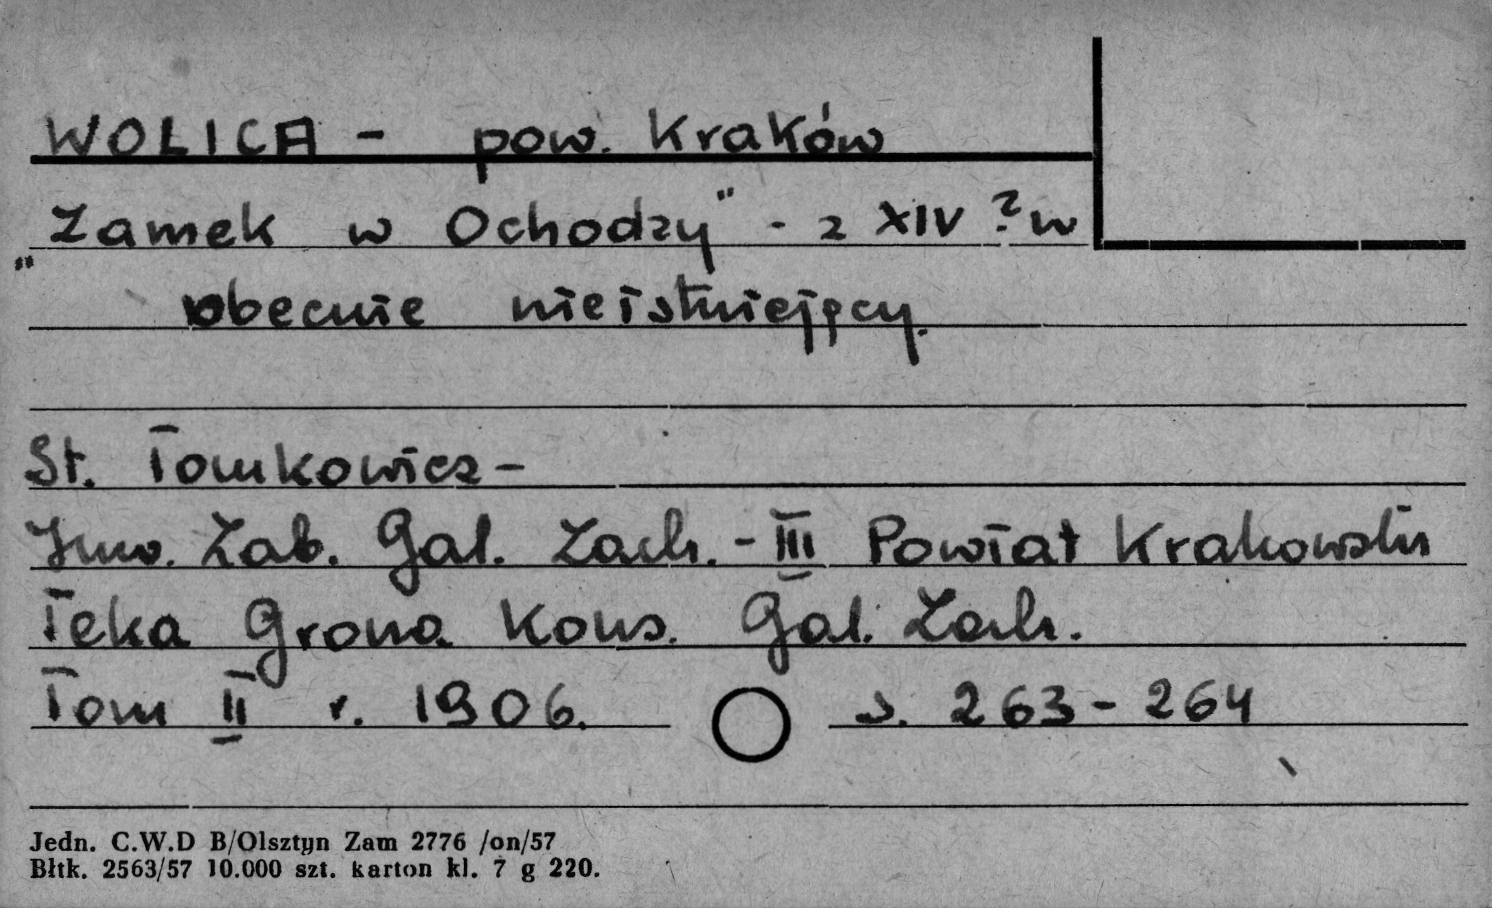 WOLICA - pow. Kraków
"Zamek w Ochodzy" - z XIV ? w
obecnie nieistniejący.
St. Tomkowicz -
Inw. Zab. Gal. Zach. - III Powiat Krakowski
Teka Grona Kons. Gal. Zach.
Tom II r. 1906. s. 263 - 264
Jedn. C.W.D B/Olsztyn Zam 2776 /on/57
Błtk. 2563/57 10.000 szt. karton kl. 7 g 220.